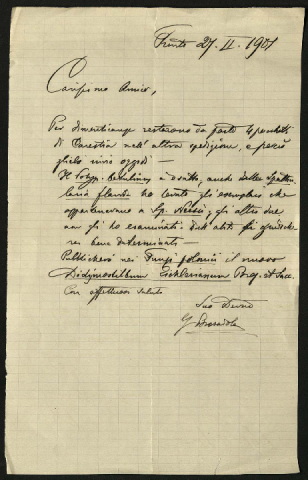 Trento 27. II - 1901
Carissimo Amico,
Per dimenticanza restarono da parte 4 pacchetti
di Carestia nell'altra spedizione, e perciò
glielo invio oggidì —
è adatto, anche della
ho tenuto gli esemplari che
appartenevano a Sp. gli altri due
non gli ho esaminati dall' abito gli giudiche
rei bene determinati —
Pubblicherò nei Fungi polonici il nuovo
Didymostilbum Eichlerianum Bres. et Sacc.
Con affettuosi saluti
Suo Devmo
G Bresadola